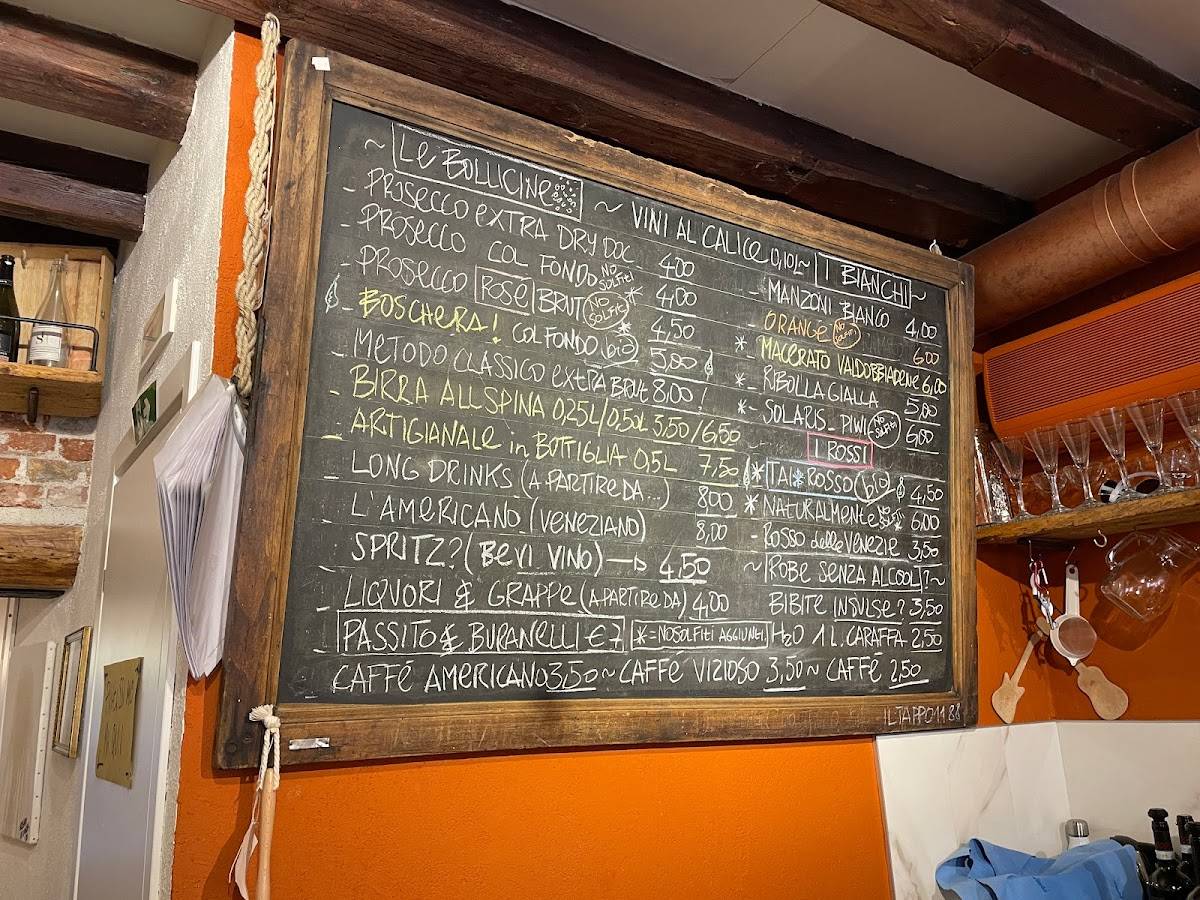 ~ Le BOLLICINE
~ VINI AL CALICE 0,10L ~
- PROSECCO EXTRA DRY DOC 4,00
- PROSECCO COL FONDO NO SOLFITI 4,00
- PROSECCO ROSÉ BRUT NO SOLFITI * 4,50
- BOSCHERA! COL FONDO bio * 5,00
- METODO CLASSICO EXTRA BRUT 8,00!
- BIRRA ALL SPINA 0,25L/0,50L 3,50/6,50
- ARTIGIANALE in BOTTIGLIA 0,5L 7,50
- LONG DRINKS (A PARTIRE DA...) 8,00
- L'AMERICANO (VENEZIANO) 8,00
SPRITZ? (BEVI VINO) → 4,50
- LIQUORI & GRAPPE (A PARTIRE DA) 4,00
- PASSITO & BURANELLI € 7
*=NO SOLFITI AGGIUNTI.
I BIANCHI ~
- MANZONI BIANCO 4,00
- ORANGE NO SOLFITI 6,00
*- MACERATO VALDOBBIADENE 6,00
*- RIBOLLA GIALLA 5,00
*- SOLARIS - PIWI NO SOLFITI 6,00
I ROSSI
* TAI * ROSSO bio 4,50
* NATURALMENTE 6,00
- ROSSO delle VENEZIE 3,50
~ ROBE SENZA ALCOOL? ~
BIBITE INSULSE? 3,50
H2O 1 L. CARAFFA 2,50
CAFFÉ AMERICANO 3,50 ~ CAFFÉ VIZIOSO 3,50 ~ CAFFÉ 2,50